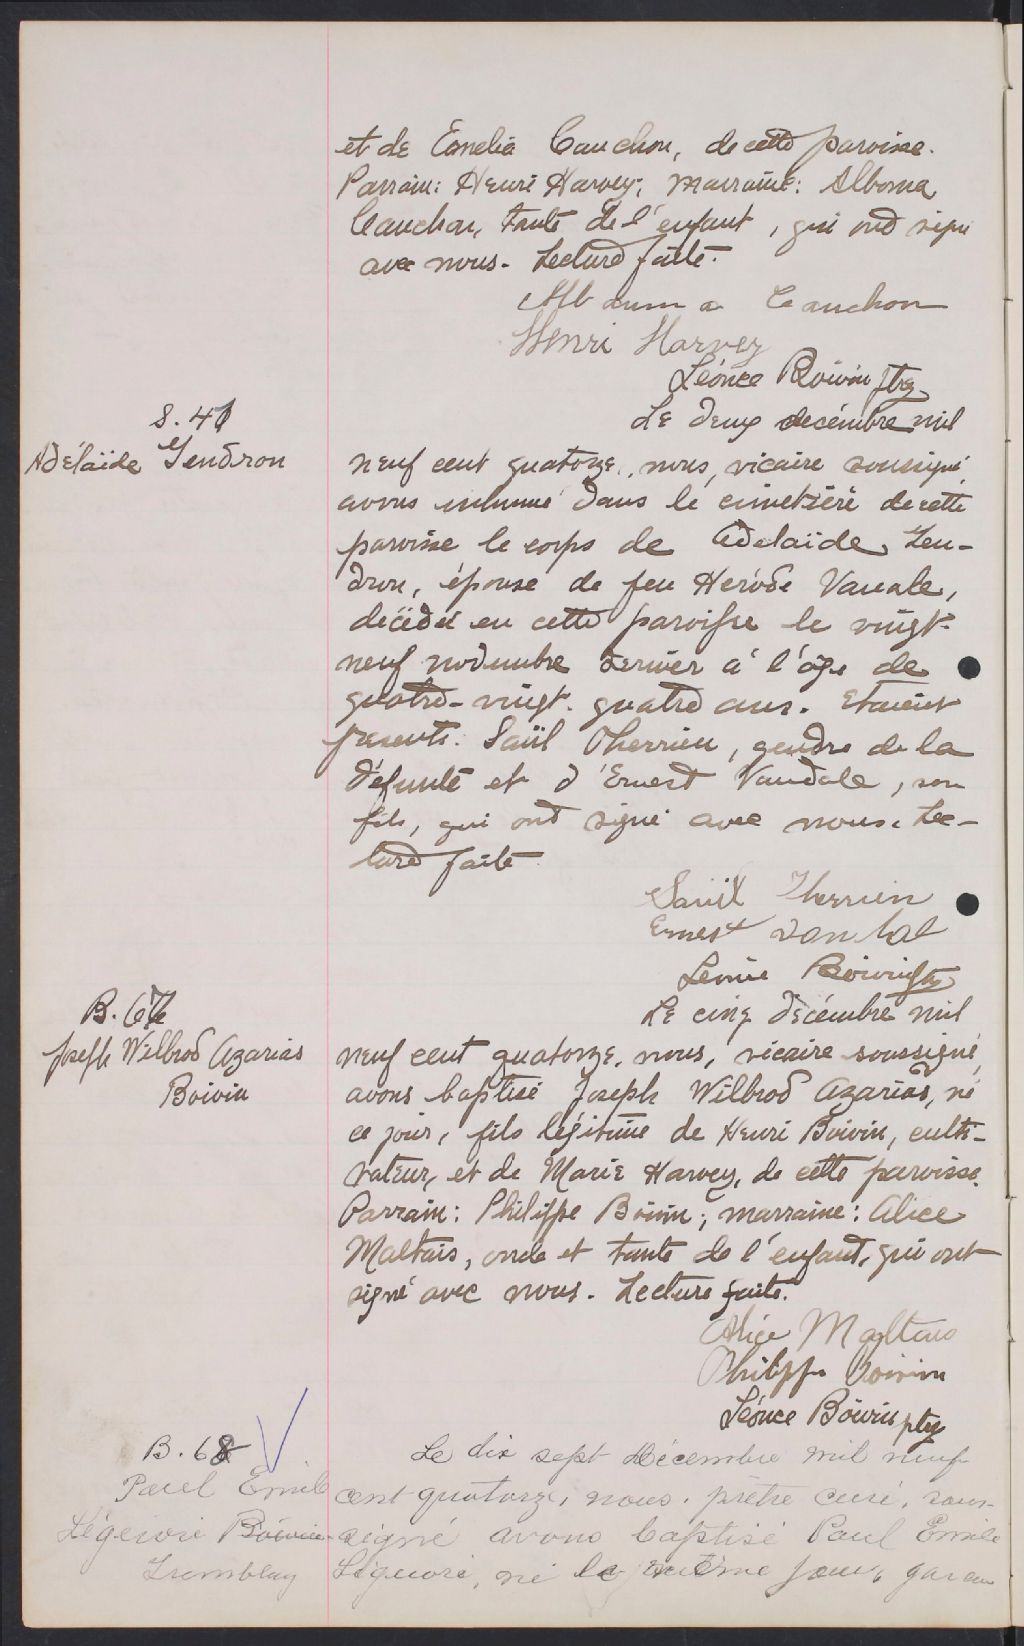 et de Emelia Cauchon, de cette paroisse.
Parrain: Henri Harvey; marraine: Alboma
Cauchon, tante de l'enfant, qui ont signé
avec nous. Lecture faite.
Albauma Cauchon
Henri Harvey
Léonce Boivin ptre
S. 41
Le deux décembre mil
Adélaïde Gendron
neuf cent quatorze, nous, vicaire soussigné
avons inhumé dans le cimetière de cette
paroisse le corps de Adélaïde Gen-
dron, épouse de feu Hérode Vandle,
décédée en cette paroisse le vingt-
neuf novembre dernier à l'âge de
quatre-vingt-quatre ans. Etaient
présents: Saül Therrien, gendre de la
défunte et d'Ernest Vandale, son
fils, qui ont signé avec nous. Lec-
ture faite
Saüil Therrien
Ernest vandal
Léonce Boivin ptre
B. 67
Le cinq décembre mil
Joseph Wilbrod Azarias
Boivin
neuf cent quatorze, nous, vicaire soussigné,
avons baptisé Joseph Wilbrod Azarias, né
ce jour, fils légitime de Henri Boivin, culti-
vateur, et de Marie Harvey, de cette paroisse.
Parrain: Philippe Boivin; marraine: Alice
Maltais, oncle et tante de l'enfant, qui ont
signé avec nous. Lecture faite.
Alice Maltais
Philippe Boivin
Léonce Boivin ptre
B. 68
Le dix sept Décembre mil neuf
Paul Emile
cent quatorze, nous, prêtre curé, sous-
Légeuori Boivin
signé avons baptisé Paul Emile
Tremblay
Liguori, né le même jour, garcon